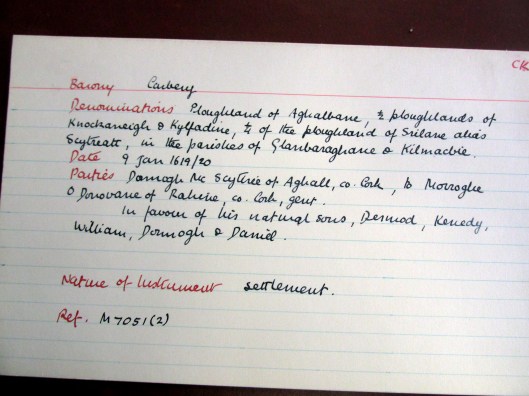 CK
Barony Carbery
Denominations Ploughland of Aghalbane, ½ ploughlands of
Knockaneigh & Kylfadine, ¼ of the ploughland of Srilane alias
Scytreatt, in the parishes of Glanbaraghane & Kilmacbie.
Date 9 Jan 1619/20
Parties Donnogh Mc Scythrie of Aghall, co. Cork, to Morroghe
O Donovane of Rahine, co. Cork, gent.
In favour of his natural sons, Dermod, Kenedy,
William, Donnogh & Daniel.
Nature of Instrument settlement.
Ref. M7051(2)